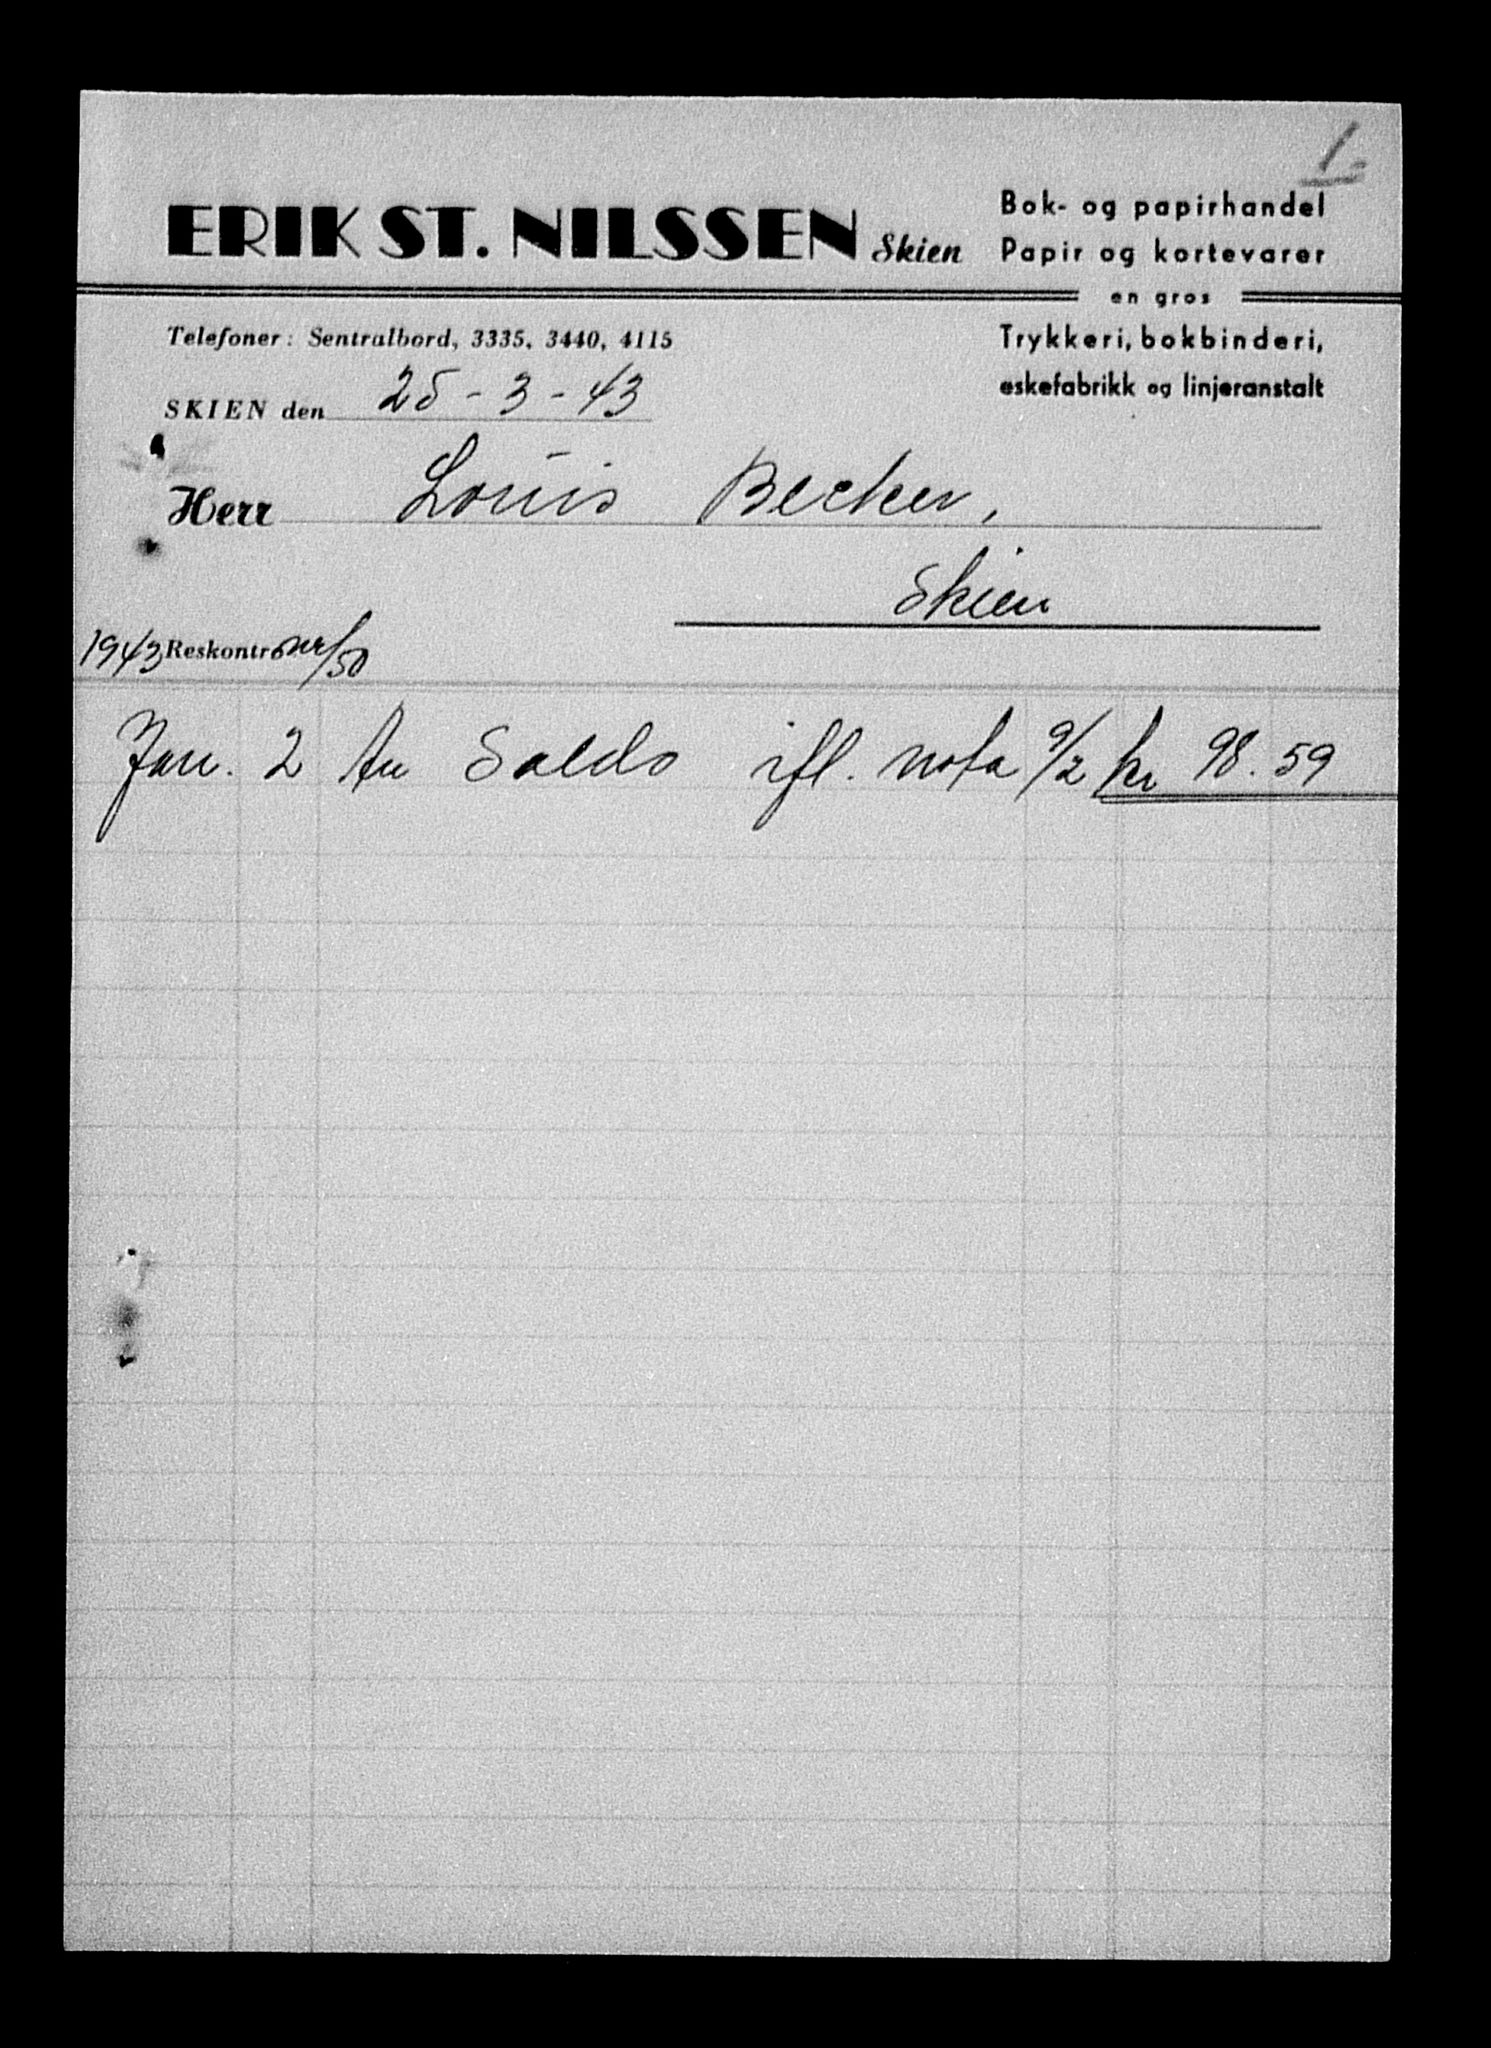 1.
ERIK ST. NILSSEN Skien
Bok- og papirhandel
Papir og kortevarer
en gros
Trykkeri, bokbinderi,
eskefabrikk og linjeranstalt
Telefoner: Sentralbord, 3335, 3440, 4115
SKIEN den 25-3-43
Herr Louis Becker,
Skien
1943 Reskontro
Jan. 2 An Saldo ifl. nota 9/2 kr 98.59